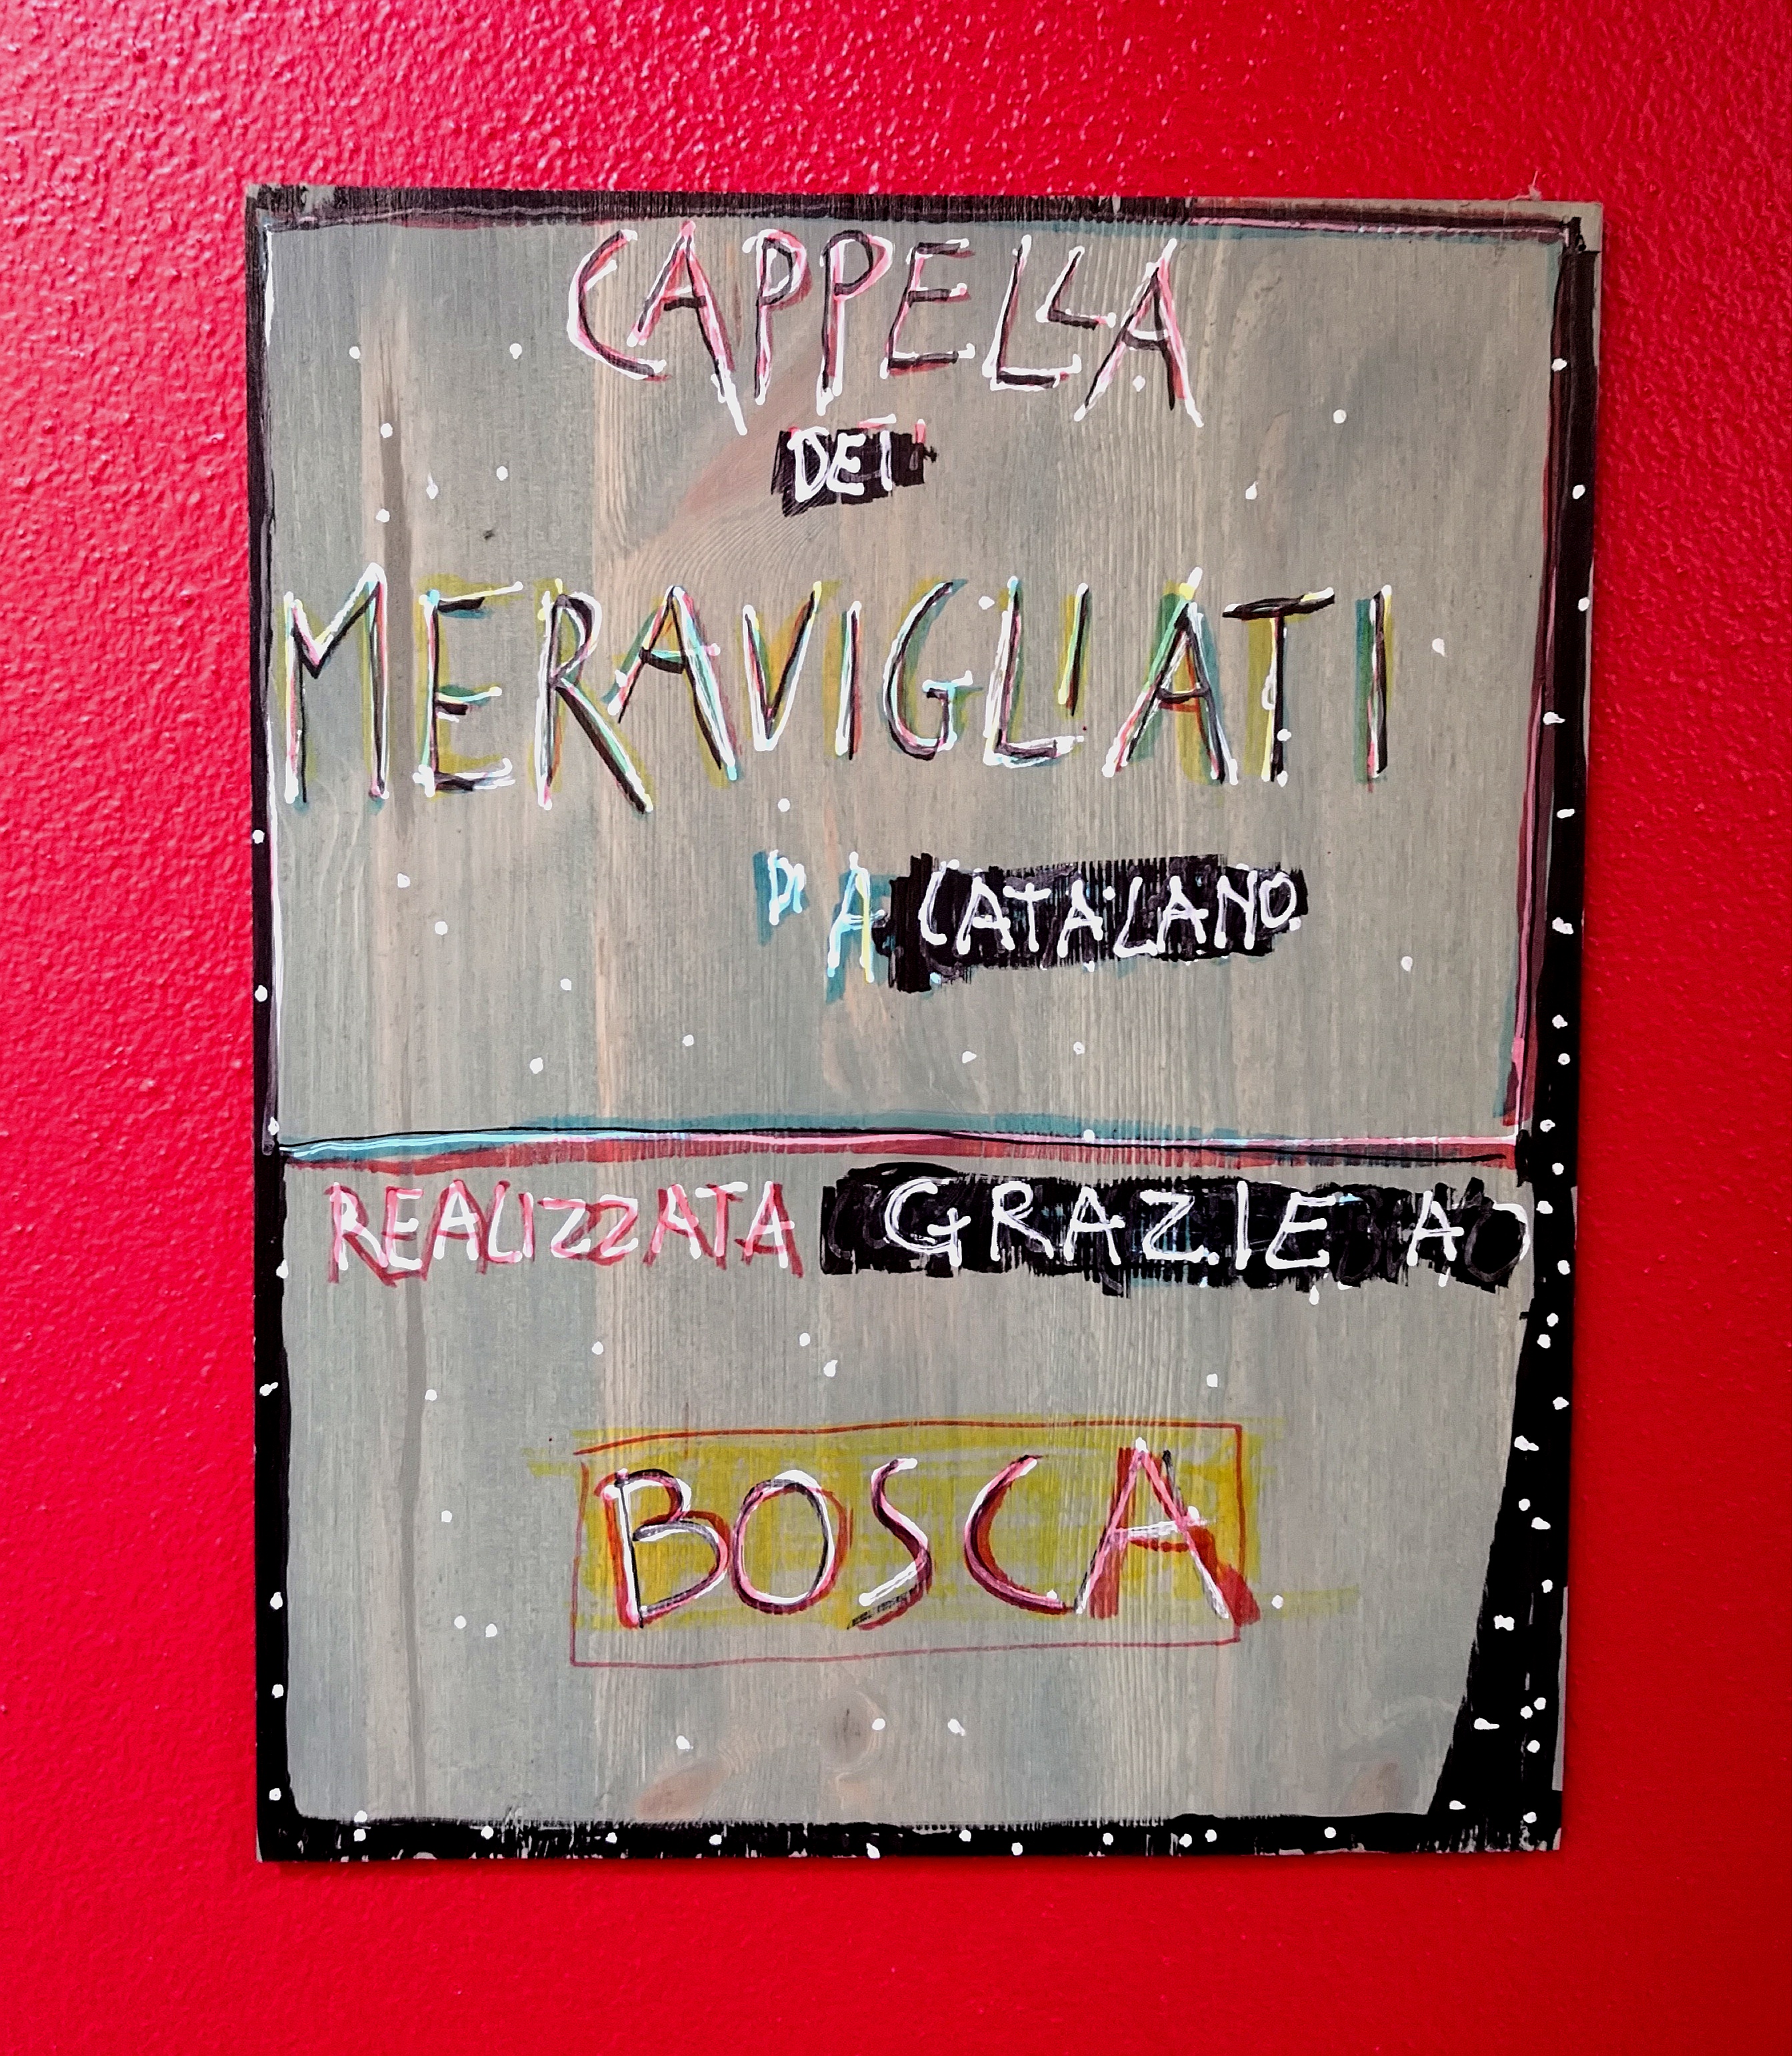 CAPPELLA
DEI
MERAVIGLIATI
DI A CATALANO
REALIZZATA GRAZIE A
BOSCA